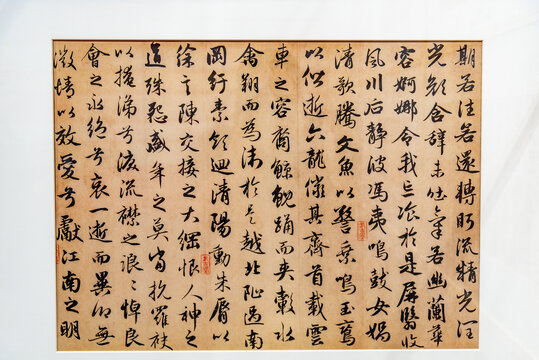 期若往若還轉眄流精光潤
玉顏含辭未吐氣若幽蘭華
容婀娜令我忘飡於是屏翳收
風川后靜波馮夷鳴鼓女媧
清歌騰文魚以警乘鳴玉鸞
以偕逝六龍儼其齊首載雲
車之容裔鯨鯢踊而夾轂水
禽翔而為衛於是越北沚過南
岡紆素領迴清陽動朱脣以
徐言陳交接之大綱恨人神之
道殊怨盛年之莫當抗羅袂
以掩涕兮淚流襟之浪浪悼良
會之永絕兮哀一逝而異鄉無
微情以效愛兮獻江南之明